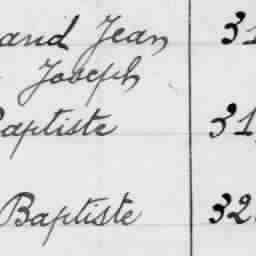 and Jean 31
Joseph
Baptiste 31
Baptiste 32